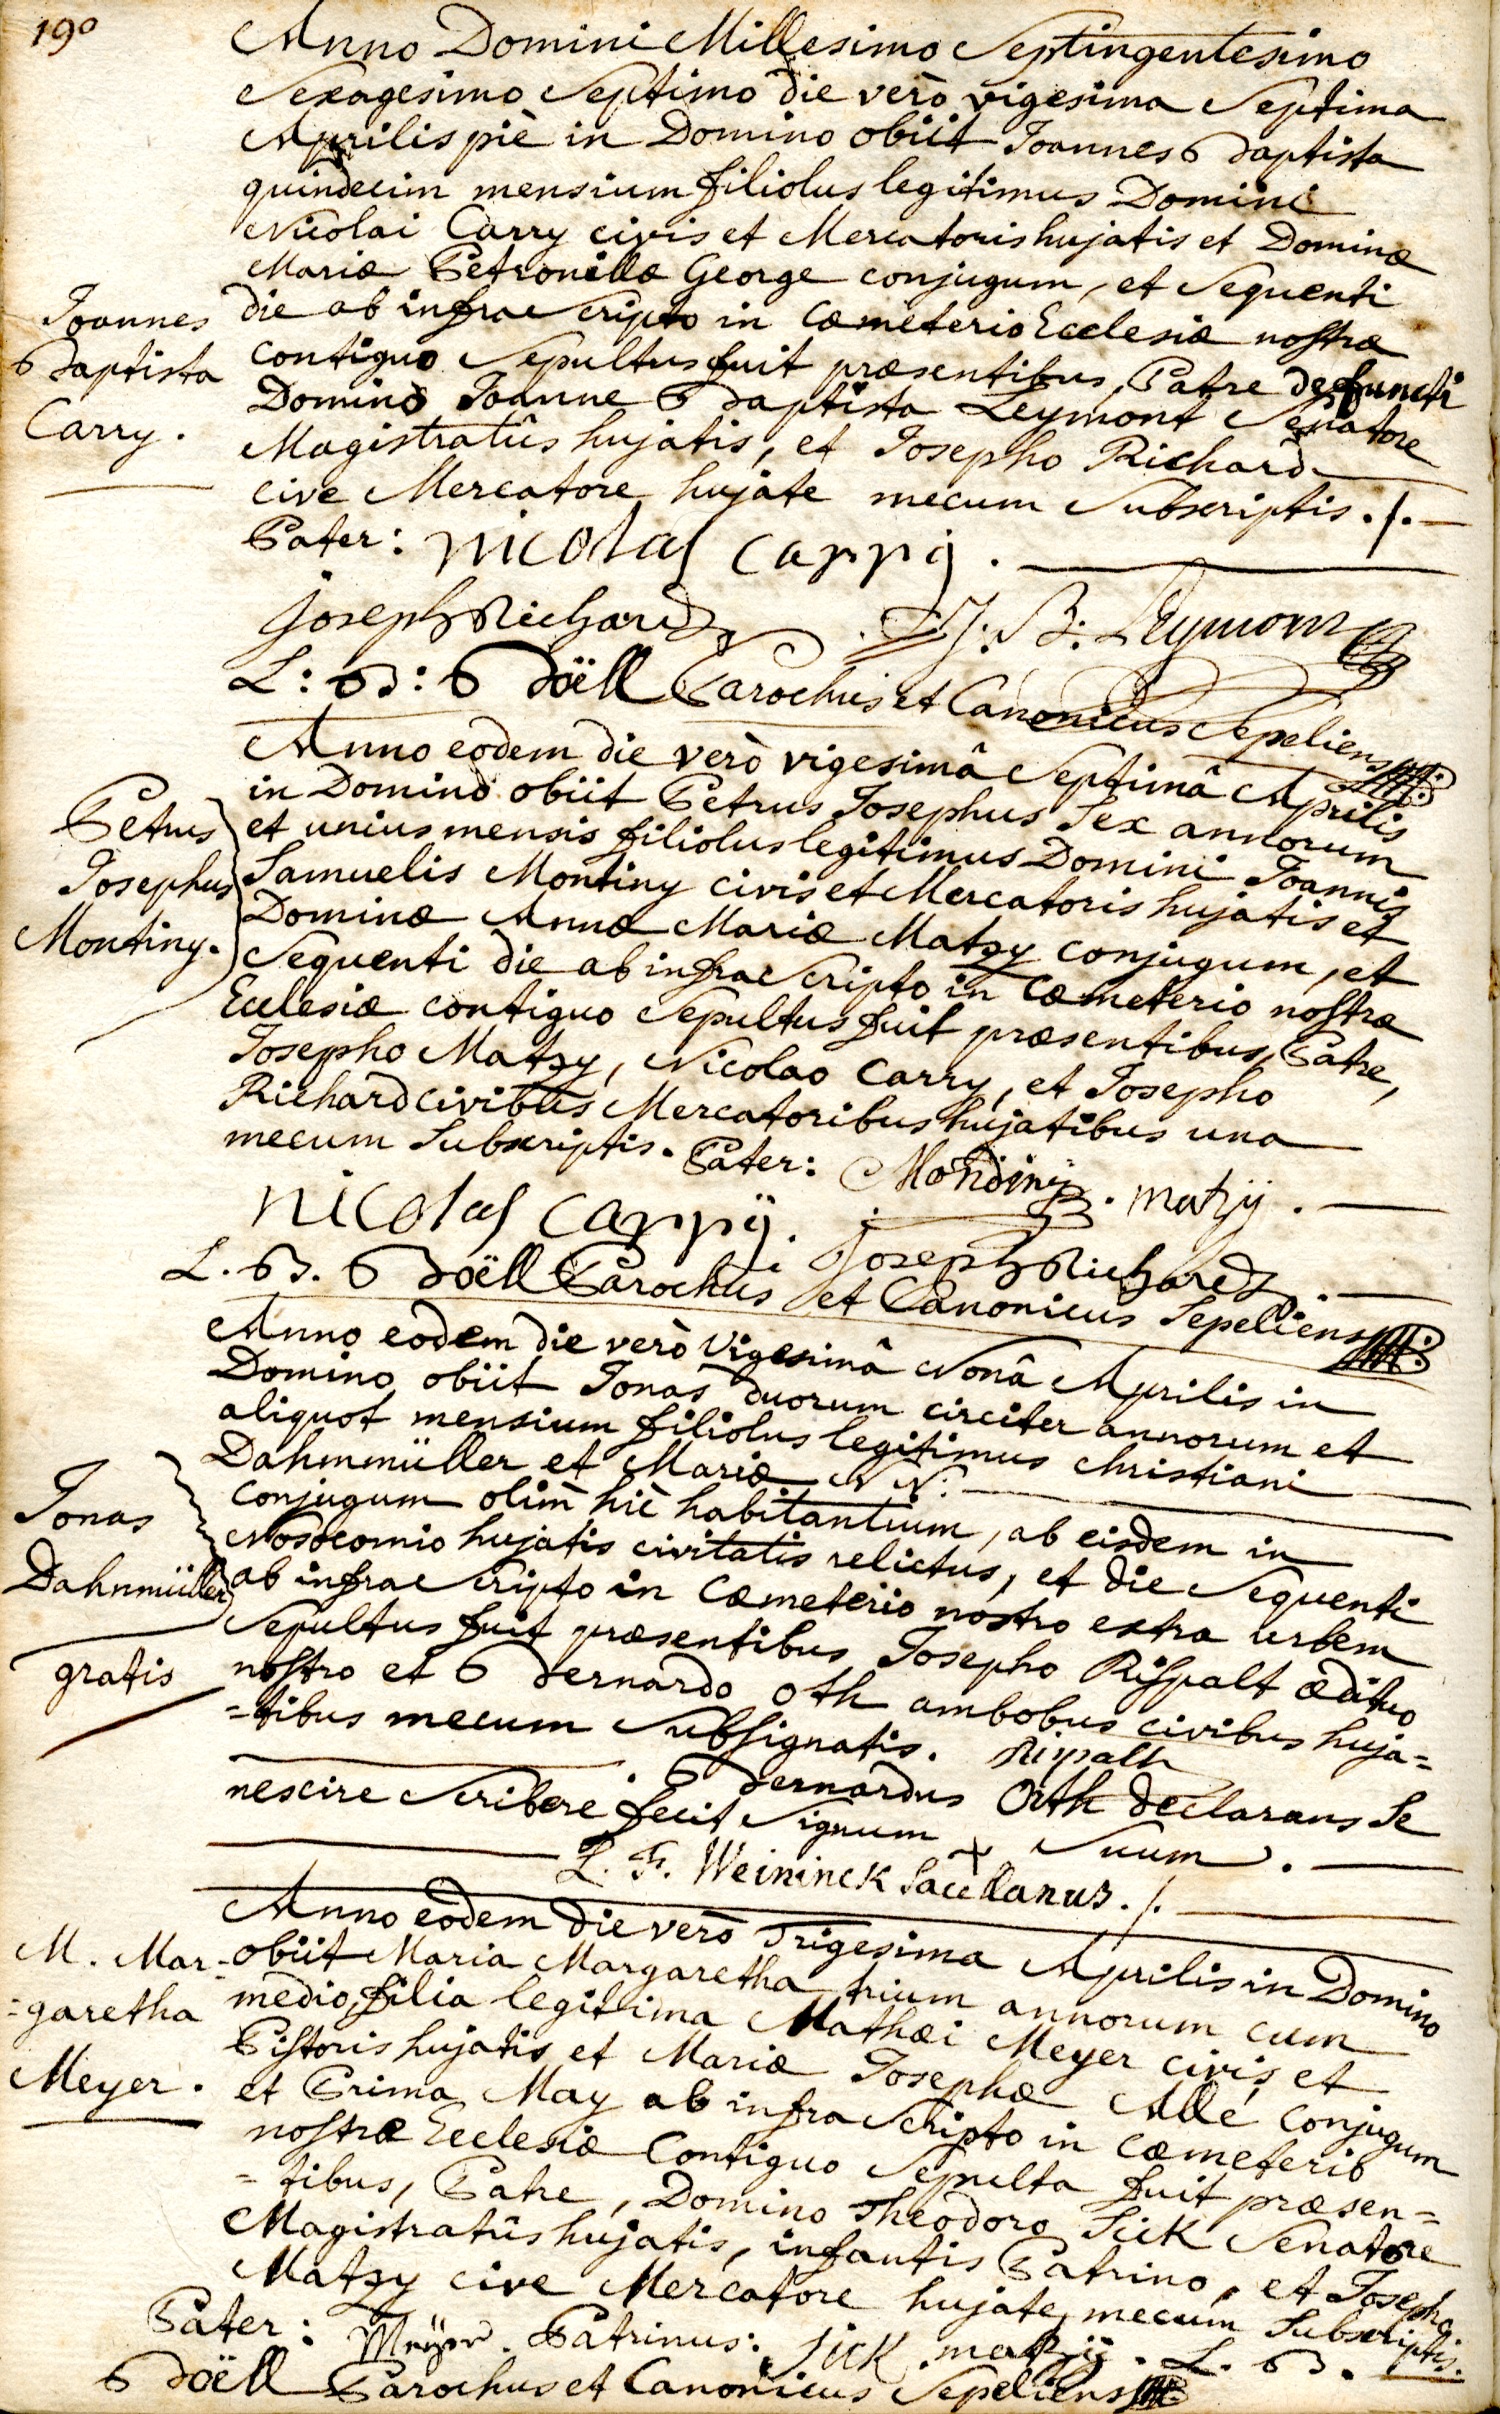 190
Anno Domini Millesimo Septingentesimo
Sexagesimo Septimo die verò vigesima Septima
Aprilis piè in Domino obiit Joannes Baptista
quindecim mensium filiolus legitimus Domini
Nicolai Carry civis et Mercatoris hujatis et Dominæ
Mariæ Petronillæ George conjugum, et Sequenti
die ab infra Scripto in Cœmeterio Ecclesiæ nostræ
contiguo Sepultus fuit præsentibus, Patre defuncti
Domino Joanne Baptista Leymont Senatore
Magistratûs hujatis, et Josepho Richard
cive Mercatore hujate mecum Subscriptis ./.
Joannes
Baptista
Carry.
Pater: nicolas carrÿ.
joseph Richard J: B: Leymont
L: B: Boëll Parochus et Canonicus Sepeliens
Anno eodem die verò vigesimâ Septimâ Aprilis
in Domino obiit Petrus Josephus Sex annorum
et unius mensis filiolus legitimus Domini Joannis
Samuelis Montiny civis et Mercatoris hujatis et
Dominæ Annæ Mariæ Matzy conjugum, et
Sequenti die ab infra Scripto in Cœmeterio nostræ
Ecclesiæ contiguo Sepultus fuit præsentibus, Patre,
Josepho Matzy, Nicolao Carry, et Josepho
Richard civibus Mercatoribus hujatibus una
mecum Subscriptis. Pater: Mondiny. matzÿ.
Petrus
Josephus
Montiny.
nicolas carrÿ. joseph Richard.
L. B. Boëll Parochus et Canonicus Sepeliens
Anno eodem die verò Vigesimâ Nonâ Aprilis in
Domino obiit Jonas duorum circiter annorum et
aliquot mensium filiolus legitimus christiani
Dahmmüller et Mariæ N N.
conjugum olim hîc habitantium, ab eisdem in
Nosocomio hujatis civitatis relictus, et die Sequenti
ab infra Scripto in Cœmeterio nostro extra urbem
Sepultus fuit præsentibus Josepho Rispalt ædituo
nostro et Bernardo Oth ambobus civibus huja=
=tibus mecum Subsignatis. Rispalt
Bernardus Orth declarans Se
nescire Scribere fecit Signum + Suum.
L. F. Weininck Sacellanus ./.
Jonas
Dahnmüller
gratis
Anno eodem die verò Trigesima Aprilis in Domino
obiit Maria Margaretha trium annorum cum
medio, filia legitima Mathæi Meyer civis et
Pistoris hujatis et Mariæ Josephæ Allé conjugum
et Prima May ab infra Scripto in Cœmeterio
nostræ Ecclesiæ contiguo Sepulta fuit præsen=
=tibus, Patre, Domino Theodoro Sick Senatore
Magistratûs hujatis, infantis Patrino, et Josepho
Matzy cive Mercatore hujate, mecum Subscriptis.
M. Mar=
=garetha
Meyer.
Pater: Meÿer. Patrinus: Sick. matzÿ. L. B.
Boëll Parochus et Canonicus Sepeliens